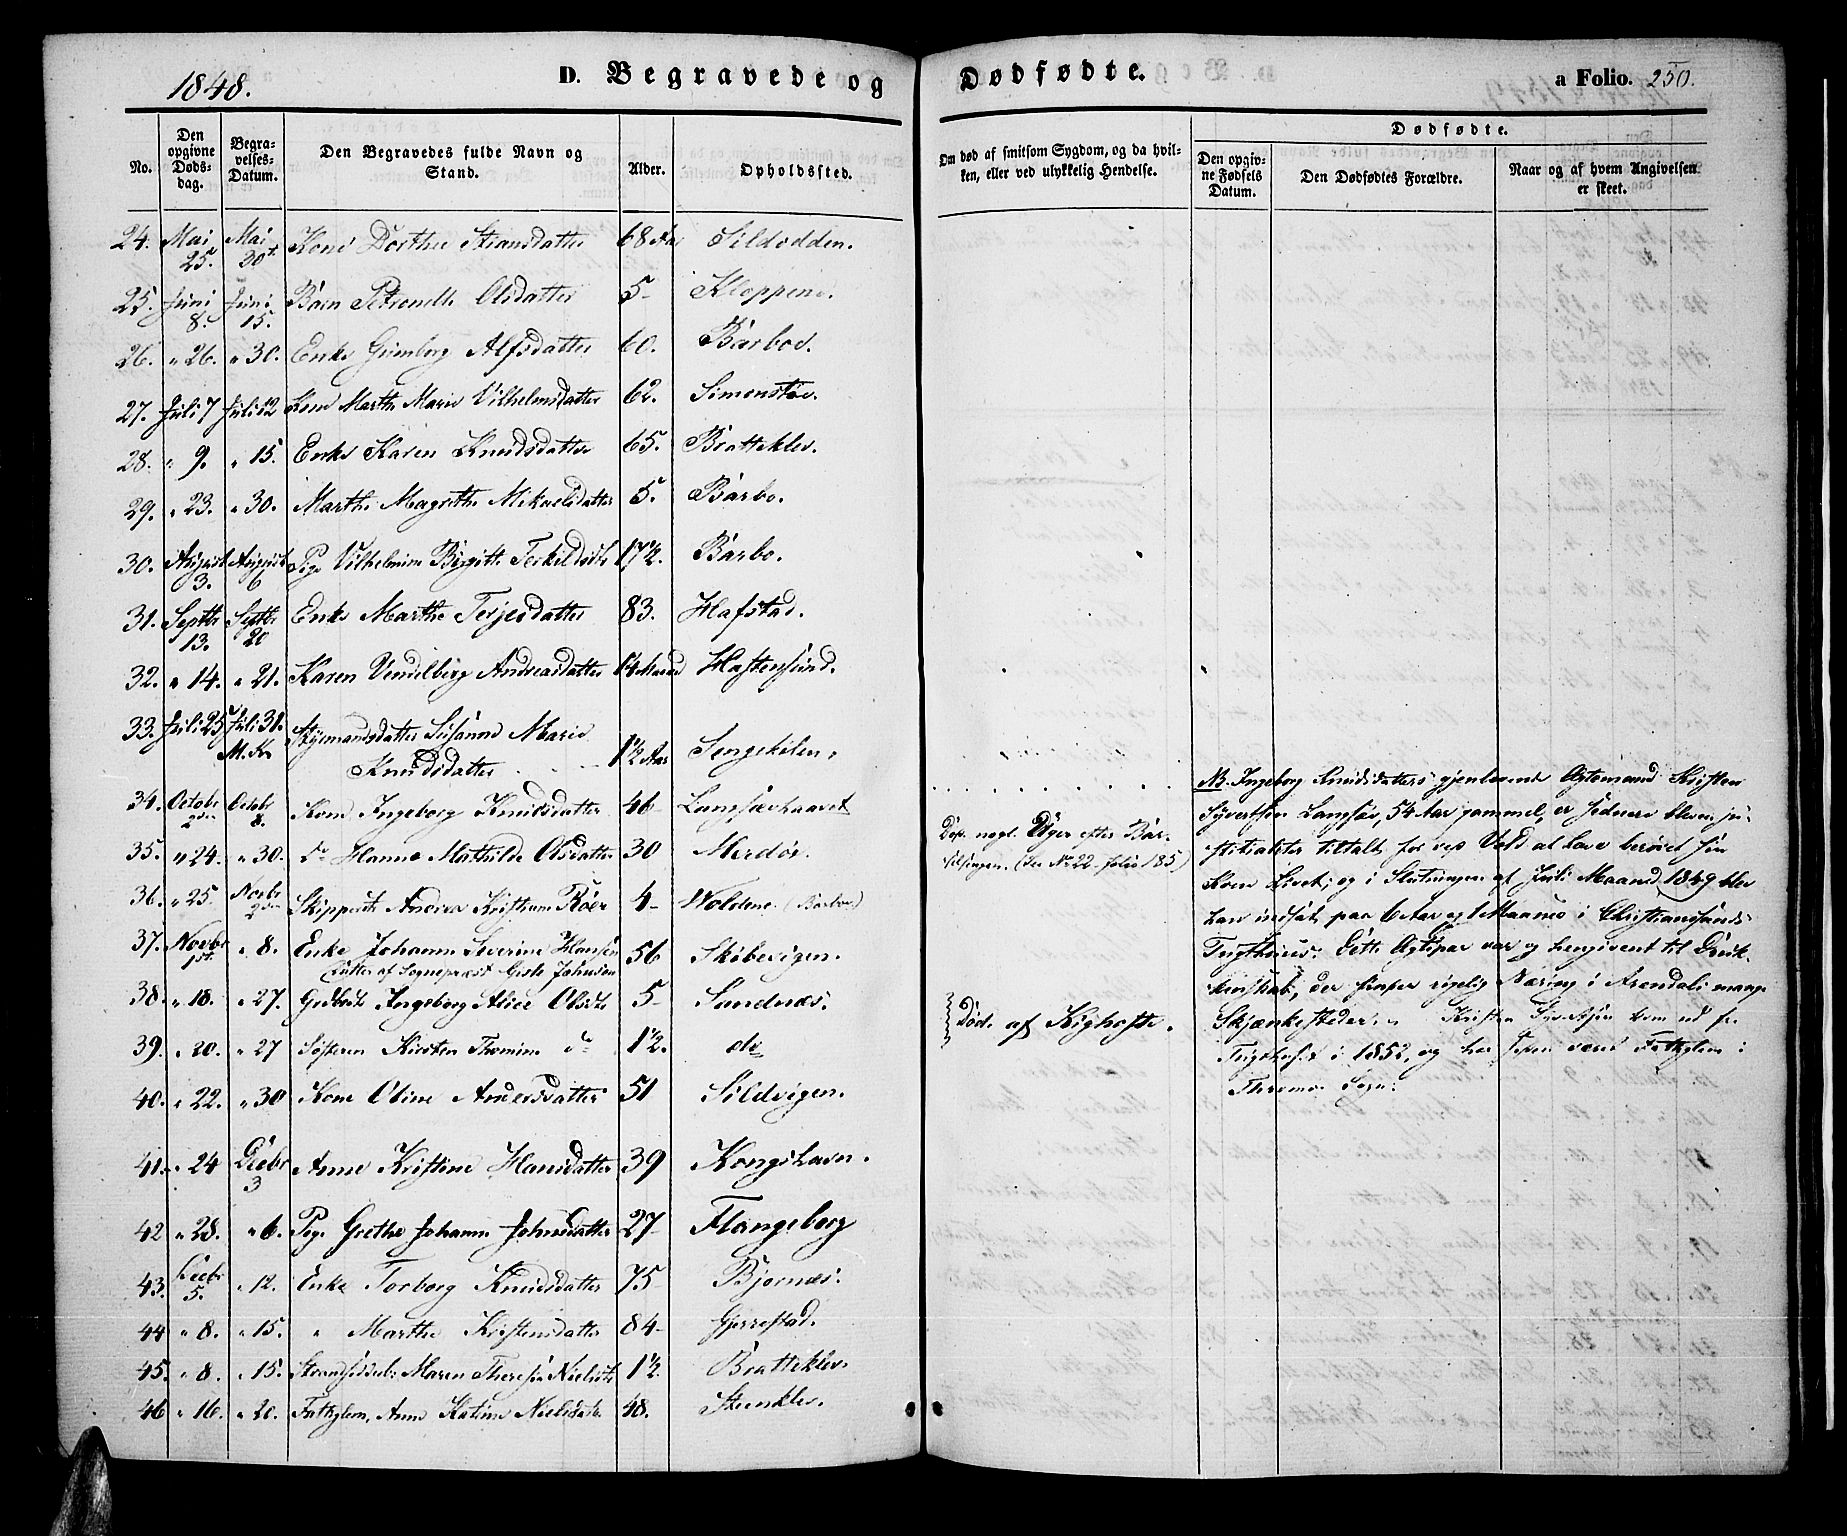 1848.
D. Begravede og Dødfødte.
a Folio. 250.
No.
Den opgivne Dødsdag.
Begravelses-Datum.
Den Begravedes fulde Navn og Stand.
Alder.
Opholdssted.
Om død af smitsom Sygdom, og da hvilken, eller ved ulykkelig Hendelse.
Dødfødte.
Den opgivne Fødsels Datum.
Den Dødfødtes Forældre.
Naar og af hvem Angivelsen er skeet.
24. Mai 25. Mai 30t. Kone Dorthe Stiansdatter 68 Aar Sildodden.
25. Juni 8. Juni 15. Barn Petronelle Olsdatter 5 - Kloppene.
26. " 26. " 30. Enke Gunborg Alfsdatter 60. Barboe.
27. Juli 7 Juli 12 Kone Marthe Marie Vilhelmsdatter 62. Simonstøe.
28. " 9. " 15. Enke Karen Knudsdatter 65. Bratteklev.
29. " 23. " 30. Marthe Magrethe Mikaelsdatter 5. Barbo.
30. August 3. August 6 Pige Vilhelmine Birgitte Terkildsdtr 17½. Barbo.
31. Septbr 13. Septbr 20 Enke Marthe Terjesdatter 83. Hafstad.
32. " 14. " 21. Karen Vendelborg Andreasdatter 14 Maaned Haftensund.
33. Juli 25 Juli 31. M. Kr Styrmandsdatter Susanne Marie
Knudsdatter 1½ Aar Sengekilen.
34. Octobr 2den Octobr 8. Kone Ingeborg Knudsdatter 46 - Langsævhauvet
35. " 24. " 30. do Hanne Mathilde Olsdatter 30 Merdøe.
Død nogle Uger efter Bar-
silsengen. (See No 22 - folio 185)
36. " 25. Novbr 2den Skipperdtr Andrea Kristiane Roer 4 - Woldene (Barboe)
37. Novbr 1st. " 8. Enke Johanne Severine Hansen
Datter af Sognepræst Giste Johnsen 56 Skibevigen.
38. " 18. " 27. Gudbrdtr Ingeborg Alice Olsdtr 5 - Sandnæs.
39. " 20. " 27 Søsteren Kirsten Thomine do 1½. do
Død af Kighoste.
40. " 22. " 30 Kone Oline Andersdatter 51 Sildvigen.
41. " 24 Decbr 3 Anne Kristine Hansdatter 39 Kongshavn.
42 " 28. " 6. Pige Grethe Johanne Johnsdatter 27 - Flangeborg
43. Decbr 5. " 12. Enke Torborg Knudsdatter 75 - Bjornæs.
44 " 8. " 15. " Marthe Kristensdatter 84 - Gjerrestad.
45. " 8. " 15. Maren Therese Nielsdtr 1½. Bratteklev.
46 " 16. " 20. Fattiglem, Anne Katrine Nielsdatr 48. Steenklev.
NB. Ingeborg Knudsdatters gjenlevende Ægtemand Kristen
Syvertsen Langsøv, 54 Aar gammel, er sidenere bleven ju-
stitialiter tiltalt for ved Vold at have berøvet sin
Kone Livet; og i Slutningen af Juli Maaned 1849 blev
han indsat paa 6 Aar og 1 Maaned i Christiansands
Tugthuus. Dette Ægtepar var og hengivent til Druk-
kenskab, der finder rigelig Næring i Arendals mange
Skjænkesteder. Kristen Syvertsen kom ud fra
Tugthuset i 1852, og har siden været Fattiglem i
Thromø Sogn.